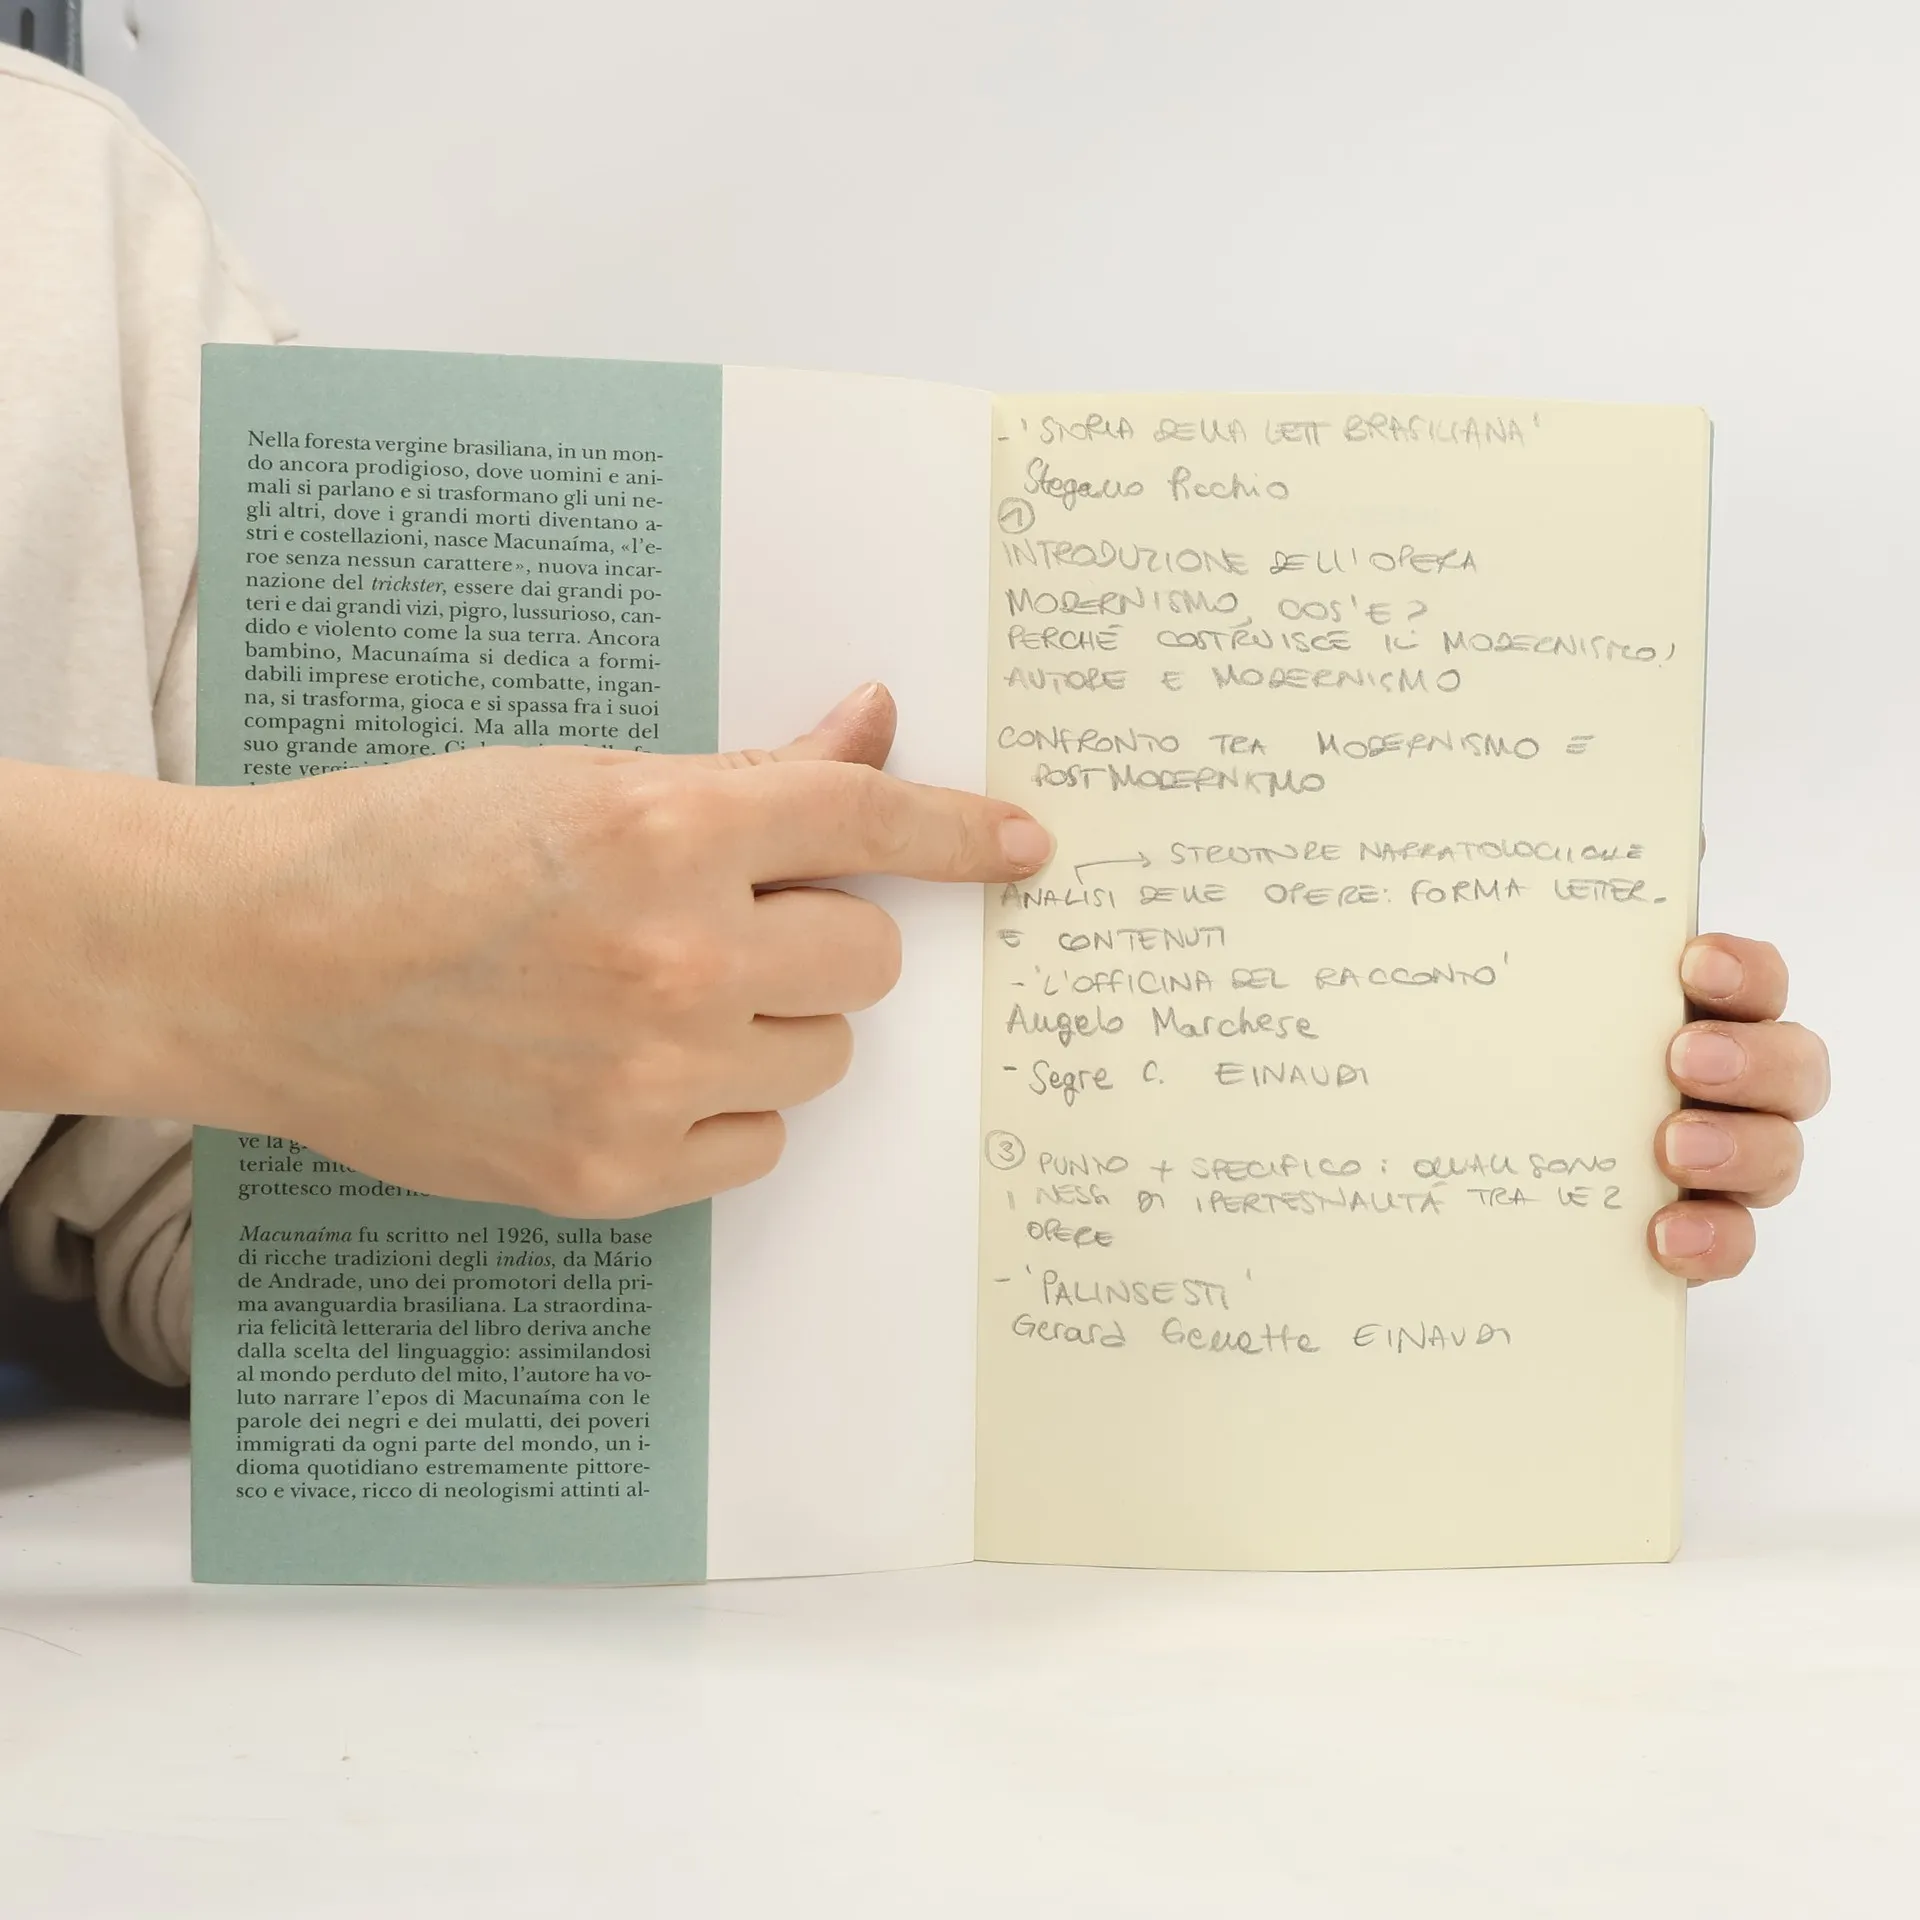 Nella foresta vergine brasiliana, in un mon-
do ancora prodigioso, dove uomini e ani-
mali si parlano e si trasformano gli uni ne-
gli altri, dove i grandi morti diventano a-
stri e costellazioni, nasce Macunaíma, «l'e-
roe senza nessun carattere», nuova incar-
nazione del trickster, essere dai grandi po-
teri e dai grandi vizi, pigro, lussurioso, can-
dido e violento come la sua terra. Ancora
bambino, Macunaíma si dedica a formi-
dabili imprese erotiche, combatte, ingan-
na, si trasforma, gioca e si spassa fra i suoi
compagni mitologici. Ma alla morte del
suo grande amore, Ci,
reste
ve la
teriale
grottesco
Macunaíma fu scritto nel 1926, sulla base
di ricche tradizioni degli indios, da Mário
de Andrade, uno dei promotori della pri-
ma avanguardia brasiliana. La straordina-
ria felicità letteraria del libro deriva anche
dalla scelta del linguaggio: assimilandosi
al mondo perduto del mito, l'autore ha vo-
luto narrare l'epos di Macunaíma con le
parole dei negri e dei mulatti, dei poveri
immigrati da ogni parte del mondo, un i-
dioma quotidiano estremamente pittore-
sco e vivace, ricco di neologismi attinti al-
- 'STORIA DELLA LETT BRASILIANA'
Stegano Picchio
1
INTRODUZIONE DELL'OPERA
MODERNISMO, COS'E?
PERCHÉ COSTRUISCE IL MODERNISMO?
AUTORE E MODERNISMO
CONFRONTO TRA MODERNISMO E
POSTMODERNISMO
→ STRUTTURE NARRATOLOGICHE
ANALISI DELLE OPERE: FORMA LETTER.
E CONTENUTI
- 'L'OFFICINA DEL RACCONTO'
Angelo Marchese
- Segre C. EINAUDI
3 PUNTO + SPECIFICO: QUALI SONO
I NESSI DI IPERTESTUALITÁ TRA LE 2
OPERE
- 'PALINSESTI'
Gerard Genette EINAUDI